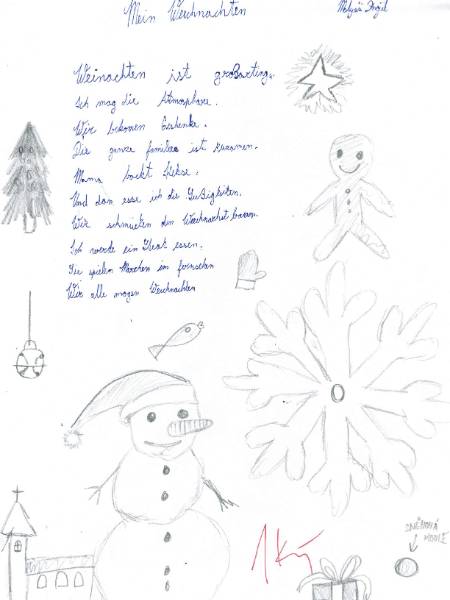 Mein Weichnachten
Weinachten ist großarting.
Ich mag die Atmosphare.
Wir bekomen Geshenke.
Die ganze familien ist zusamen.
Mama backt Kekse.
Und dan esse ich die Sußigkeiten.
Wir schmücken den Weichnachstbaum.
Ich werde ein Steak essen.
Sie spielen Märchen im fernsehen
Wir alle mogen Weichnachten
SNĚHOVÁ
KOULE